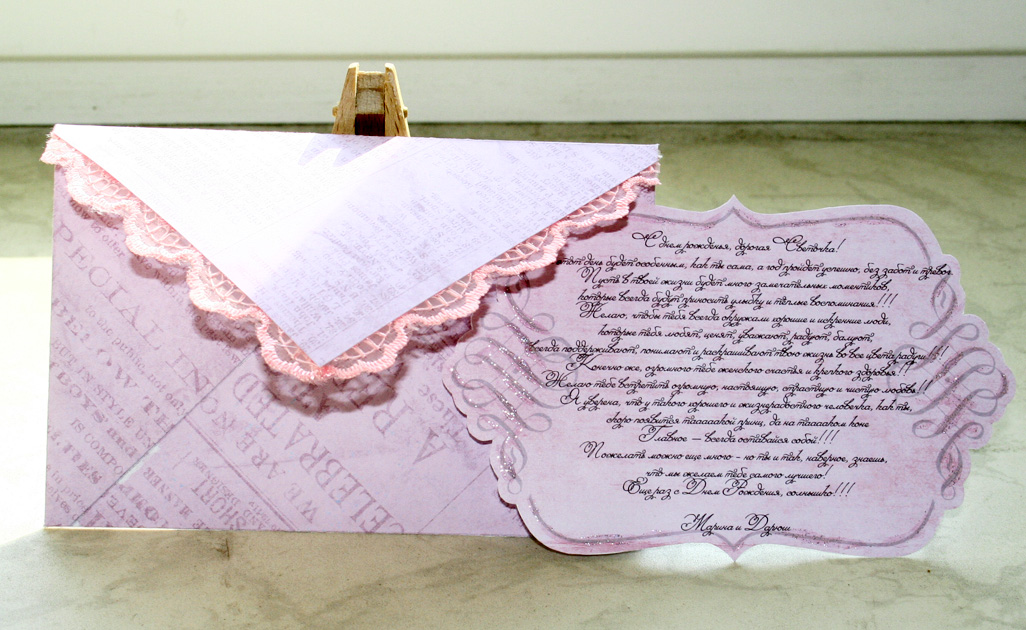 С днем рожденья, дорогая Светочка!
этот день будет особенным, как ты сама, а год пройдет успешно, без забот и тревог.
Пусть в твоей жизни будет много замечательных моментиков,
которые всегда будут приносить улыбку и тёплые воспоминания!!!
Желаю, чтобы тебя всегда окружали хорошие и искренние люди,
которые тебя любят, ценят, уважают, радуют, балуют,
всегда поддерживают, понимают и раскрашивают твою жизнь во все цвета радуги!!!
Конечно же, огромного тебе женского счастья и крепкого здоровья!!!
Желаю тебе встретить огромную, настоящую, страстную и чистую любовь!!!
Я уверена, что у такого хорошего и жизнерадостного человечка, как ты,
скоро появится тааааакой принц, да на тааааком коне
Главное – всегда оставайся собой!!!
Пожелать можно еще много - но ты и так, наверное, знаешь,
что мы желаем тебе самого лучшего!
Еще раз с Днем Рождения, солнышко!!!
Марина и Дарюш
CELEBRATE
WE ARE
SHORT